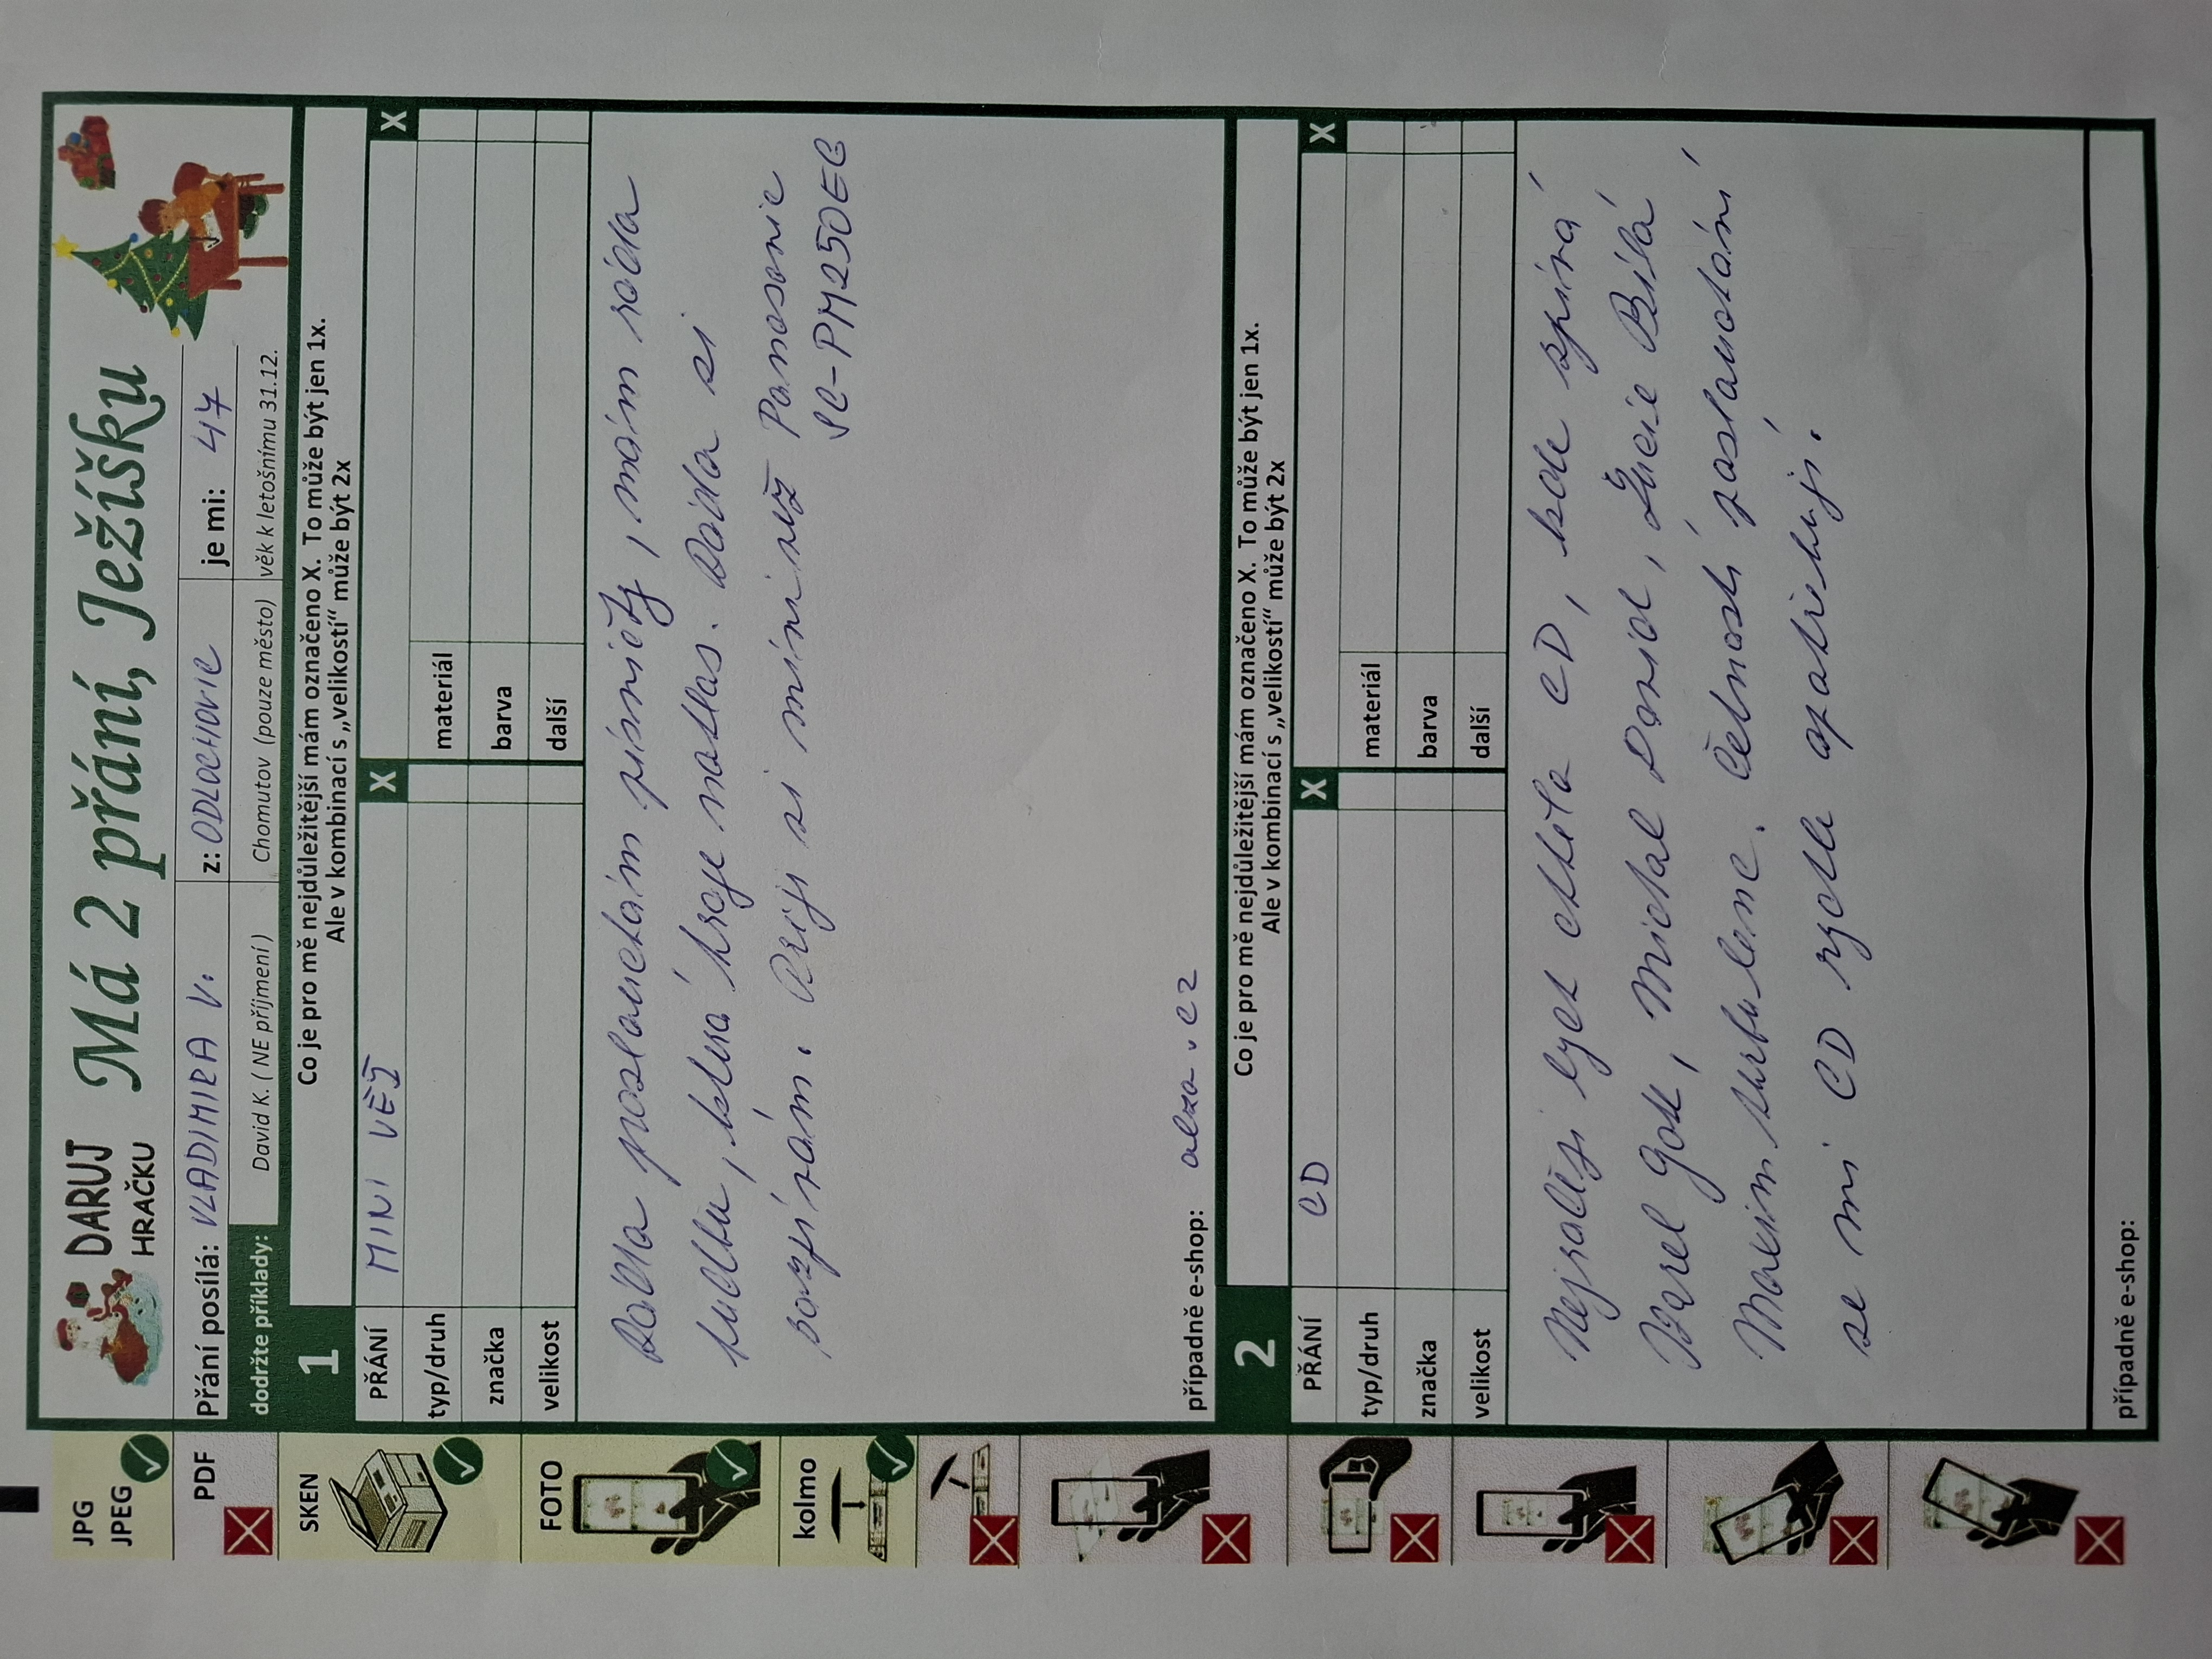 JPG
JPEG
PDF
SKEN
FOTO
kolmo
DARUJ
HRAČKU
Má 2 přání, Ježíšku
Přání posílá: VLADIMIRA V. z: ODLOCHOVIC je mi: 47
dodržte příklady: David K. ( NE příjmení ) Chomutov (pouze město) věk k letošnímu 31.12.
1 Co je pro mě nejdůležitější mám označeno X. To může být jen 1x.
Ale v kombinací s „velikostí“ může být 2x
PŘÁNÍ MINI VĚŽ X X
typ/druh materiál
značka barva
velikost další
Ráda poslouchám písničky, mám ráda
hudbu, která hraje nahlas. Ráda si
zazpívám. Přeji si mini věž Panasonic
SC-PM250EG
případně e-shop: alza.cz
2 Co je pro mě nejdůležitější mám označeno X. To může být jen 1x.
Ale v kombinací s „velikostí“ může být 2x
PŘÁNÍ CD X X
typ/druh materiál
značka barva
velikost další
Nejraději bych chtěla CD, kde zpívá
Karel Gott, Michal David, Lucie Bílá
Maxim Turbulenc. Četností poslouchání
se mi CD rychle opotřebují.
případně e-shop: